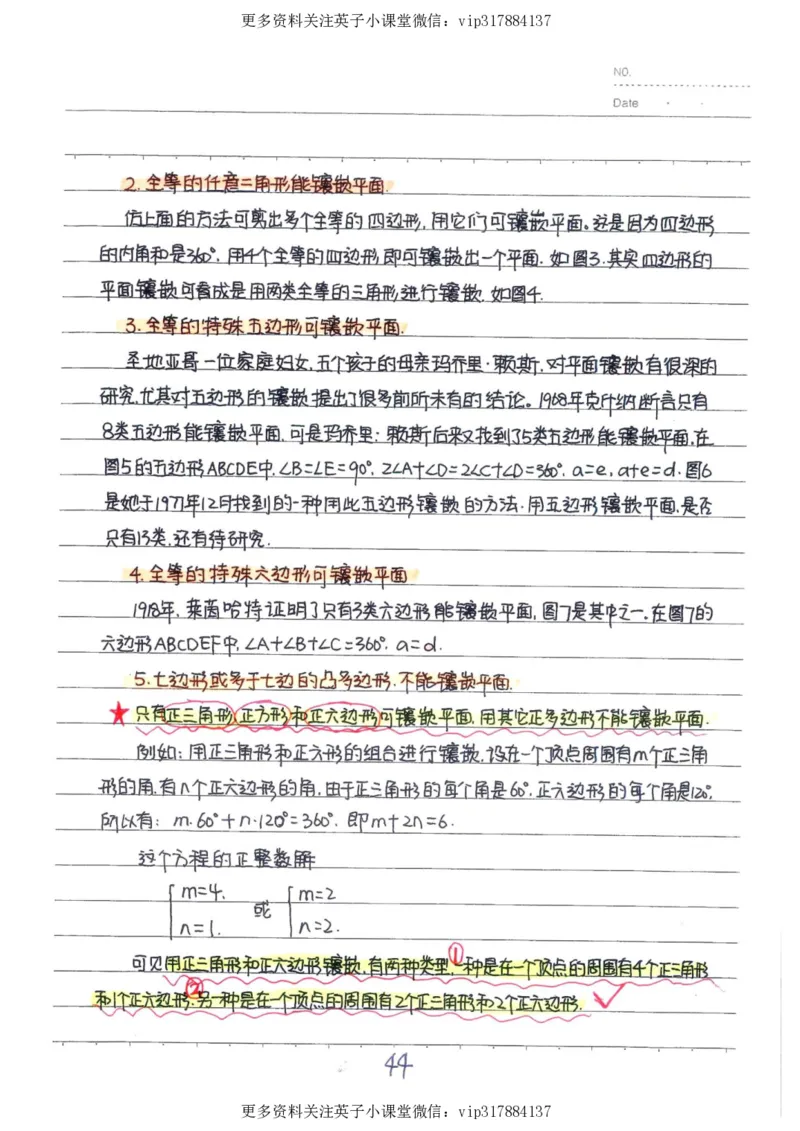 更多资料关注英子小课堂微信：vip317884137
NO.
Date
2.全等的任意三角形能镶嵌平面.
仿上面的方法可剪出多个全等的四边形,用它们可镶嵌平面。这是因为四边形
的内角和是360°.用4个全等的四边形即可镶嵌出一个平面.如图3.其实四边形的
平面镶嵌可看成是用两类全等的三角形进行镶嵌.如图4.
3.全等的特殊五边形可镶嵌平面.
圣地亚哥一位家庭妇女,五个孩子的母亲玛乔里·赖斯,对平面镶嵌有很深的
研究,尤其对五边形的镶嵌提出了很多前所未有的结论。1968年克什纳断言只有
8类五边形能镶嵌平面,可是玛乔里·赖斯后来又找到了5类五边形能镶嵌平面,在
图5的五边形ABCDE中,∠B=∠E=90°,2∠A+∠D=2∠C+∠D=360°,a=e,a+e=d.图6
是她于1977年12月找到的一种用此五边形镶嵌的方法.用五边形镶嵌平面,是否
只有13类,还有待研究.
4.全等的特殊六边形可镶嵌平面
1918年,莱茵哈特证明了只有3类六边形能镶嵌平面,图7是其中之一.在图7的
六边形ABCDEF中,∠A+∠B+∠C=360°,a=d.
5.七边形或多于七边的凸多边形,不能镶嵌平面.
★只有正三角形、正方形和正六边形可镶嵌平面,用其它正多边形不能镶嵌平面.
例如:用正三角形和正六形的组合进行镶嵌,设在一个顶点周围有m个正三角
形的角,有n个正六边形的角.由于正三角形的每个角是60°,正六边形的每个角是120°,
所以有：m·60°+n·120°=360°,即m+2n=6.
这个方程的正整数解
{m=4, n=1. 或 {m=2 n=2.
可见用正三角形和正六边形镶嵌,有两种类型,①一种是在一个顶点的周围有4个正三角形
和1个正六边形,②另一种是在一个顶点的周围有2个正三角形和2个正六边形. ✓
44
更多资料关注英子小课堂微信：vip317884137